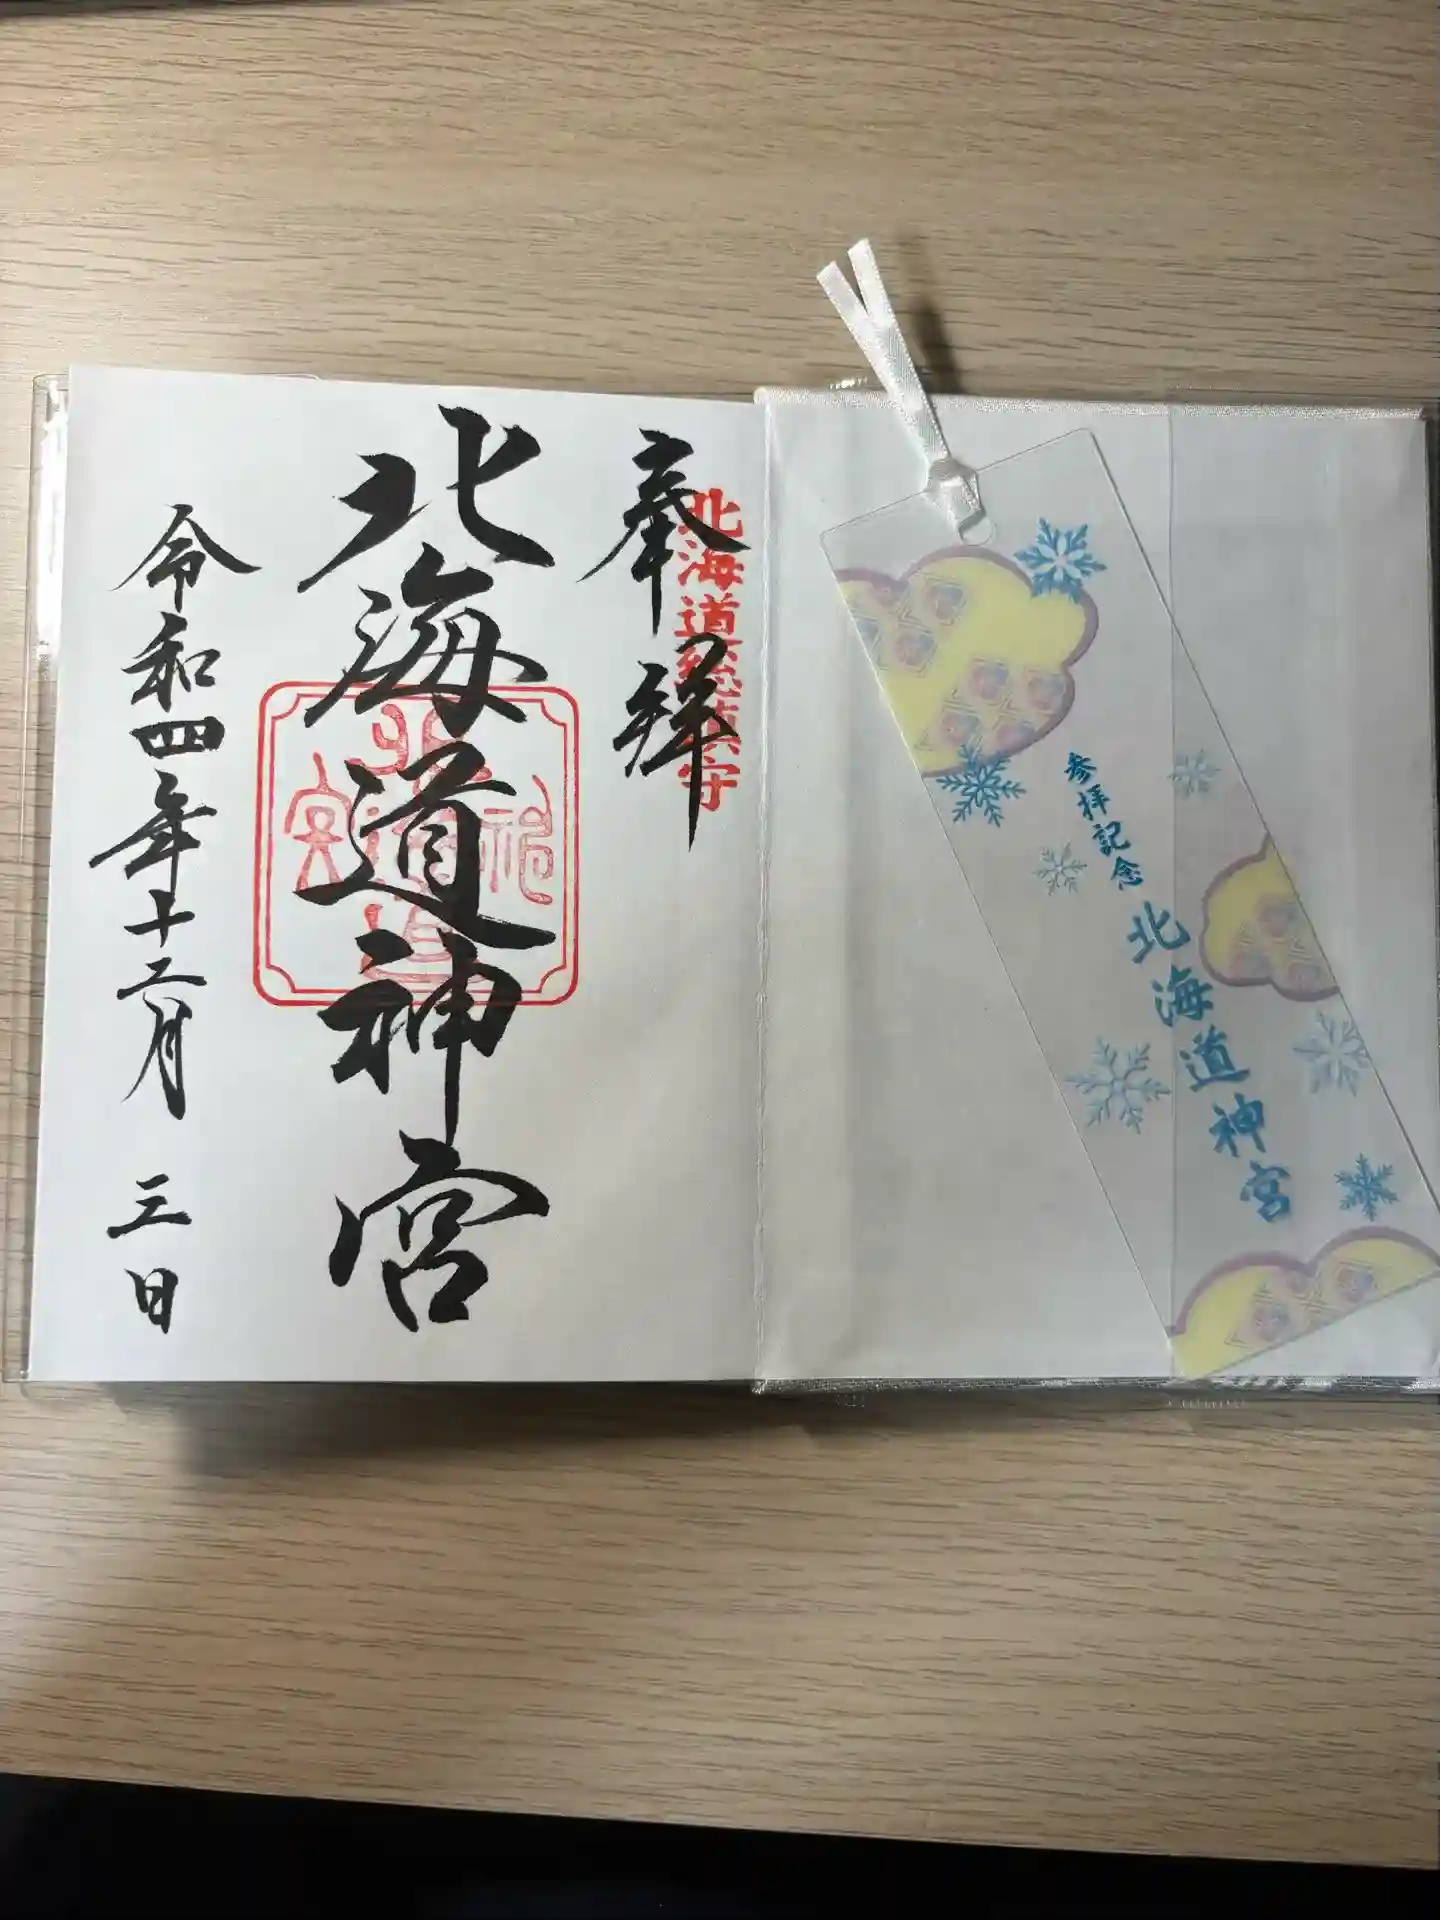 奉拝
北海道総鎮守
北海道神宮
令和四年十二月三日
参拝記念
北海道神宮